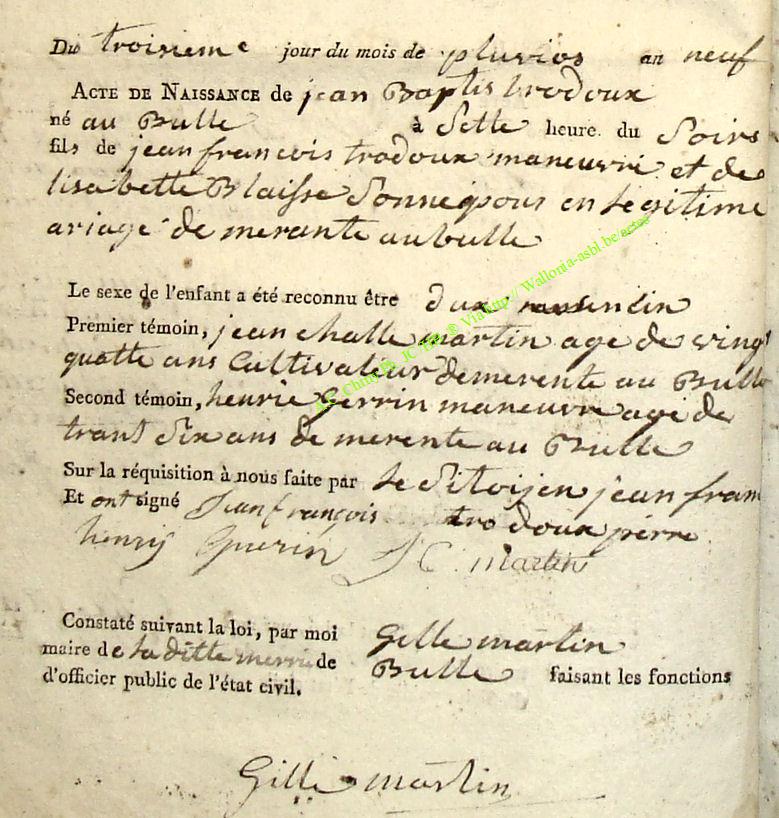 Du troisieme jour du mois de pluvios an neuf
ACTE DE NAISSANCE de jean Baptis trodoux
né au Bulle à Sette heure du Soirs
fils de jean francois trodoux maneuvre et de
lisabette Blaisse Sonnepous en Legitime
ariage de merante au bulle
Le sexe de l'enfant a été reconnu être du masculin
Premier témoin, jean challe martin age de vingt
quatte ans Cultivateur demerente au Bulle
Second témoin, henrie gerrin maneuvre age de
trant Six ans de merente au Bulle
Sur la réquisition à nous faite par Le Sitoijen jean fran
Et ont signé Jean françois tro doux perre
henry Guerin J C martin
Constaté suivant la loi, par moi Gille martin
maire de la ditte merrie de Bulle faisant les fonctions
d'officier public de l'état civil.
Gille martin
Via http:// Wallonia-asbl.be/actes